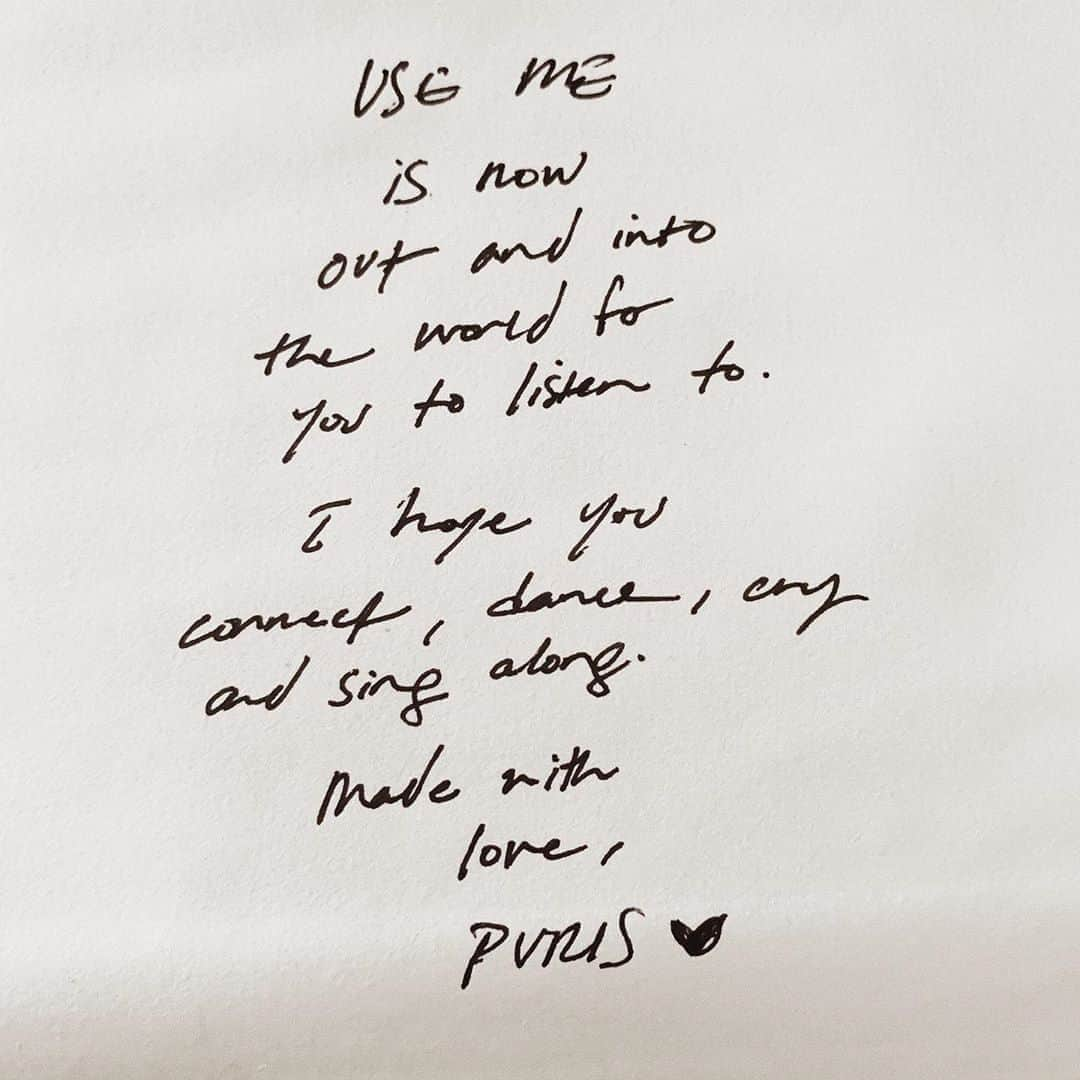 USE ME
is now
out and into
the world for
you to listen to.
I hope you
connect, dance, cry
and sing along.
Made with
love,
PVRIS ♥